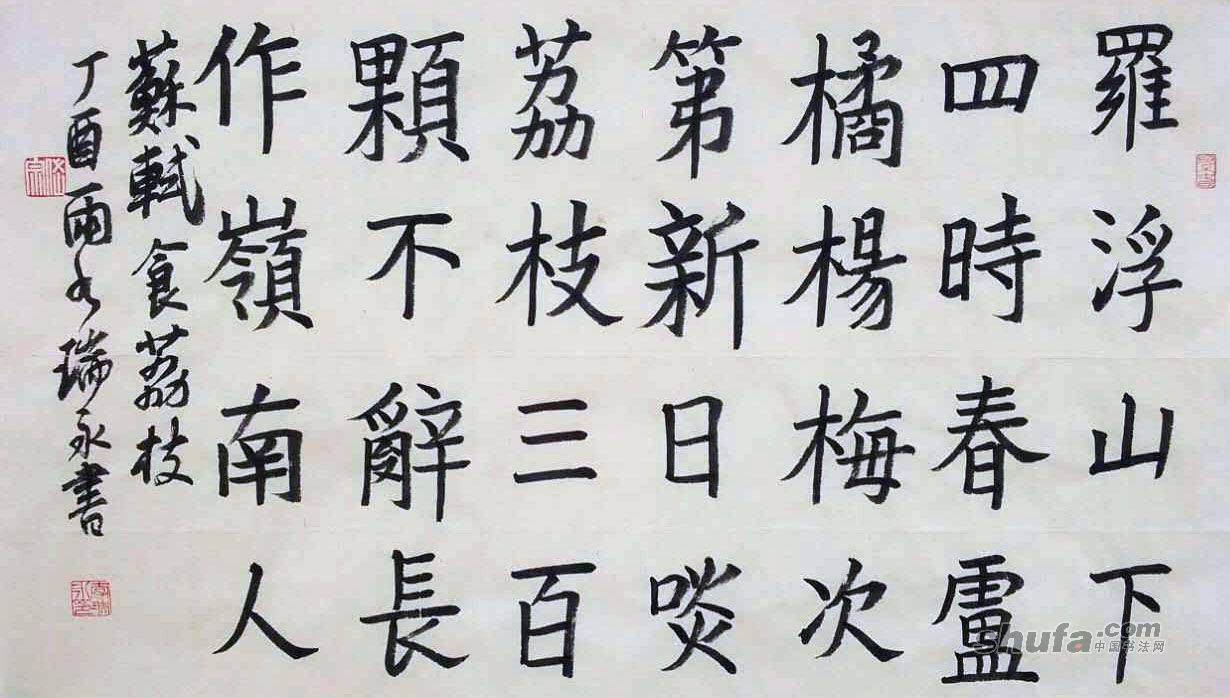 羅浮山下
四時春盧
橘楊梅次
第新日啖
荔枝三百
顆不辭長
作嶺南人
蘇軾食荔枝
丁酉雨水瑞永書
shufa.com
中国书法网